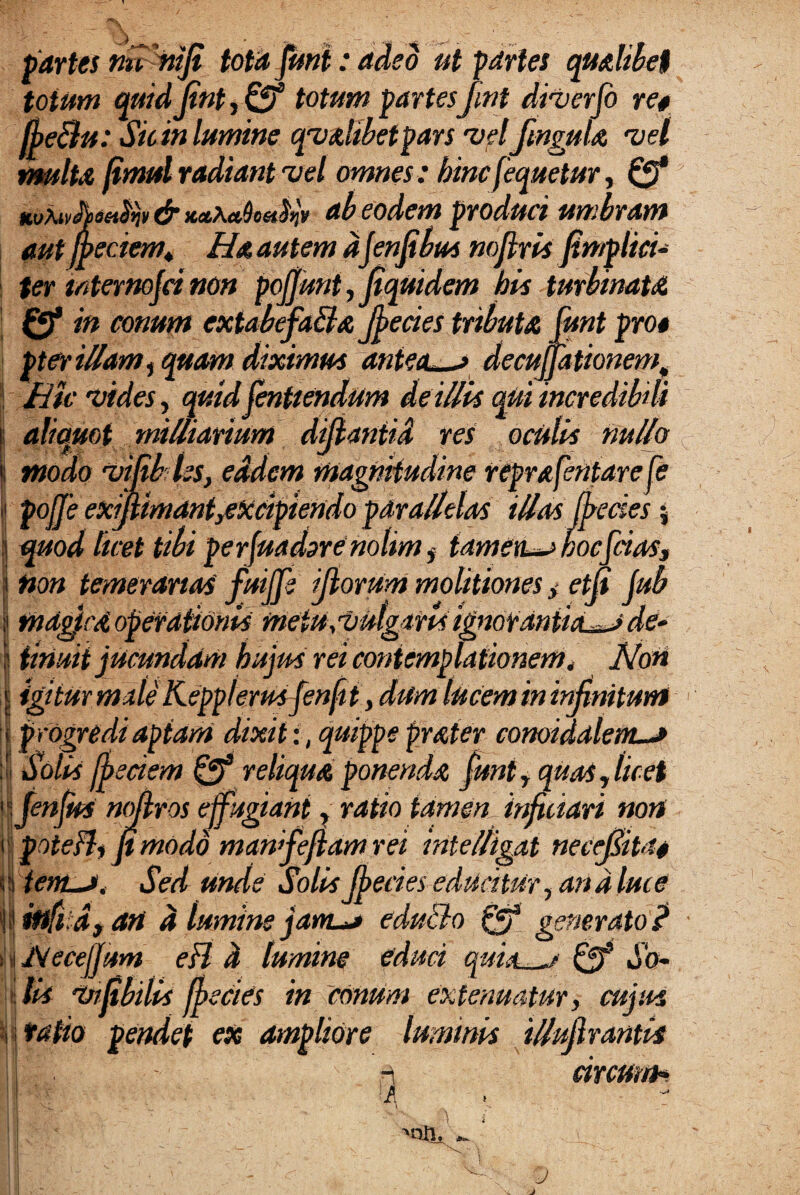 partes nisi tota sunt: adeò ut partes quælibet
totum quid sint, & totum partes sint diverso re-
spectu: Sic in lumine qvælibet pars vel singulæ vel
multæ simul radiant vel omnes: hinc sequetur, &
κυλινδροειδῆν & καλαθοειδῆν ab eodem produci umbram
aut speciem. Hæ autem à sensibus nostris simplici-
ter internosci non possunt, siquidem his turbinatæ
& in conum extabefactæ species tributæ sunt pro-
pter illam, quam diximus antea decussationem.
Hic vides, quid sentiendum de illis qui incredibili
aliquot milliarium distantiâ res oculis nullo
modo visibiles, eâdem magnitudine repræsentare se
posse existimant, excipiendo parallelas illas species;
quod licet tibi persuadere nolim, tamen hoc scias,
non temerarias fuisse istorum molitiones, etsi sub
magicæ operationis metu, vulgaris ignorantia de-
tinuit jucundam hujus rei contemplationem. Non
igitur malè Kepplerus sensit, dum lucem in infinitum
progredi aptam dixit:, quippe præter conoidalem
Solis speciem & reliquæ ponendæ sunt, quas, licet
sensus nostros effugiant, ratio tamen inficiari non
potest, si modò manifestam rei intelligat necessita-
tem. Sed unde Solis species educitur, an à luce
insitâ, an à lumine jam educto & generato?
Necessum est à lumine educi quia & So-
lis visibilis species in conum extenuatur, cujus
ratio pendet ex ampliore luminis illustrantis
circum-